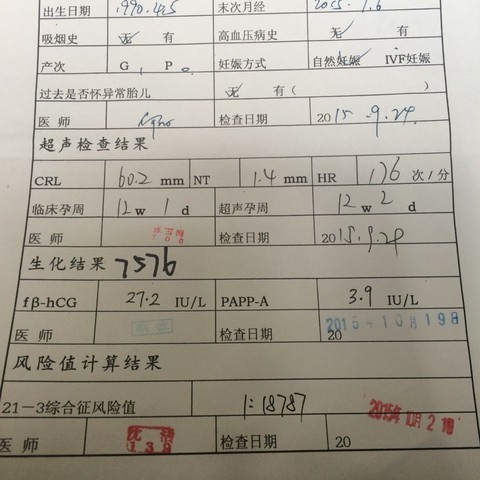 出生日期 1990.4.5 末次月经
吸烟史 无 有 高血压病史 无 有
产次 G1 P0 妊娠方式 自然妊娠 IVF妊娠
过去是否怀异常胎儿 无 有( )
医 师 检查日期 2015.9.29.
超声检查结果
CRL 60.2 mm NT 1.4 mm HR 176 次/分
临床孕周 12 w 1 d 超声孕周 12 w 2 d
医 师 检查日期 2015.9.29
生化结果 7576
fβ-hCG 27.2 IU/L PAPP-A 3.9 IU/L
医 师 检查日期 20 2015年10月19日
风险值计算结果
21-3综合征风险值 1:18787
医 师 139 检查日期 20 2015年10月21日